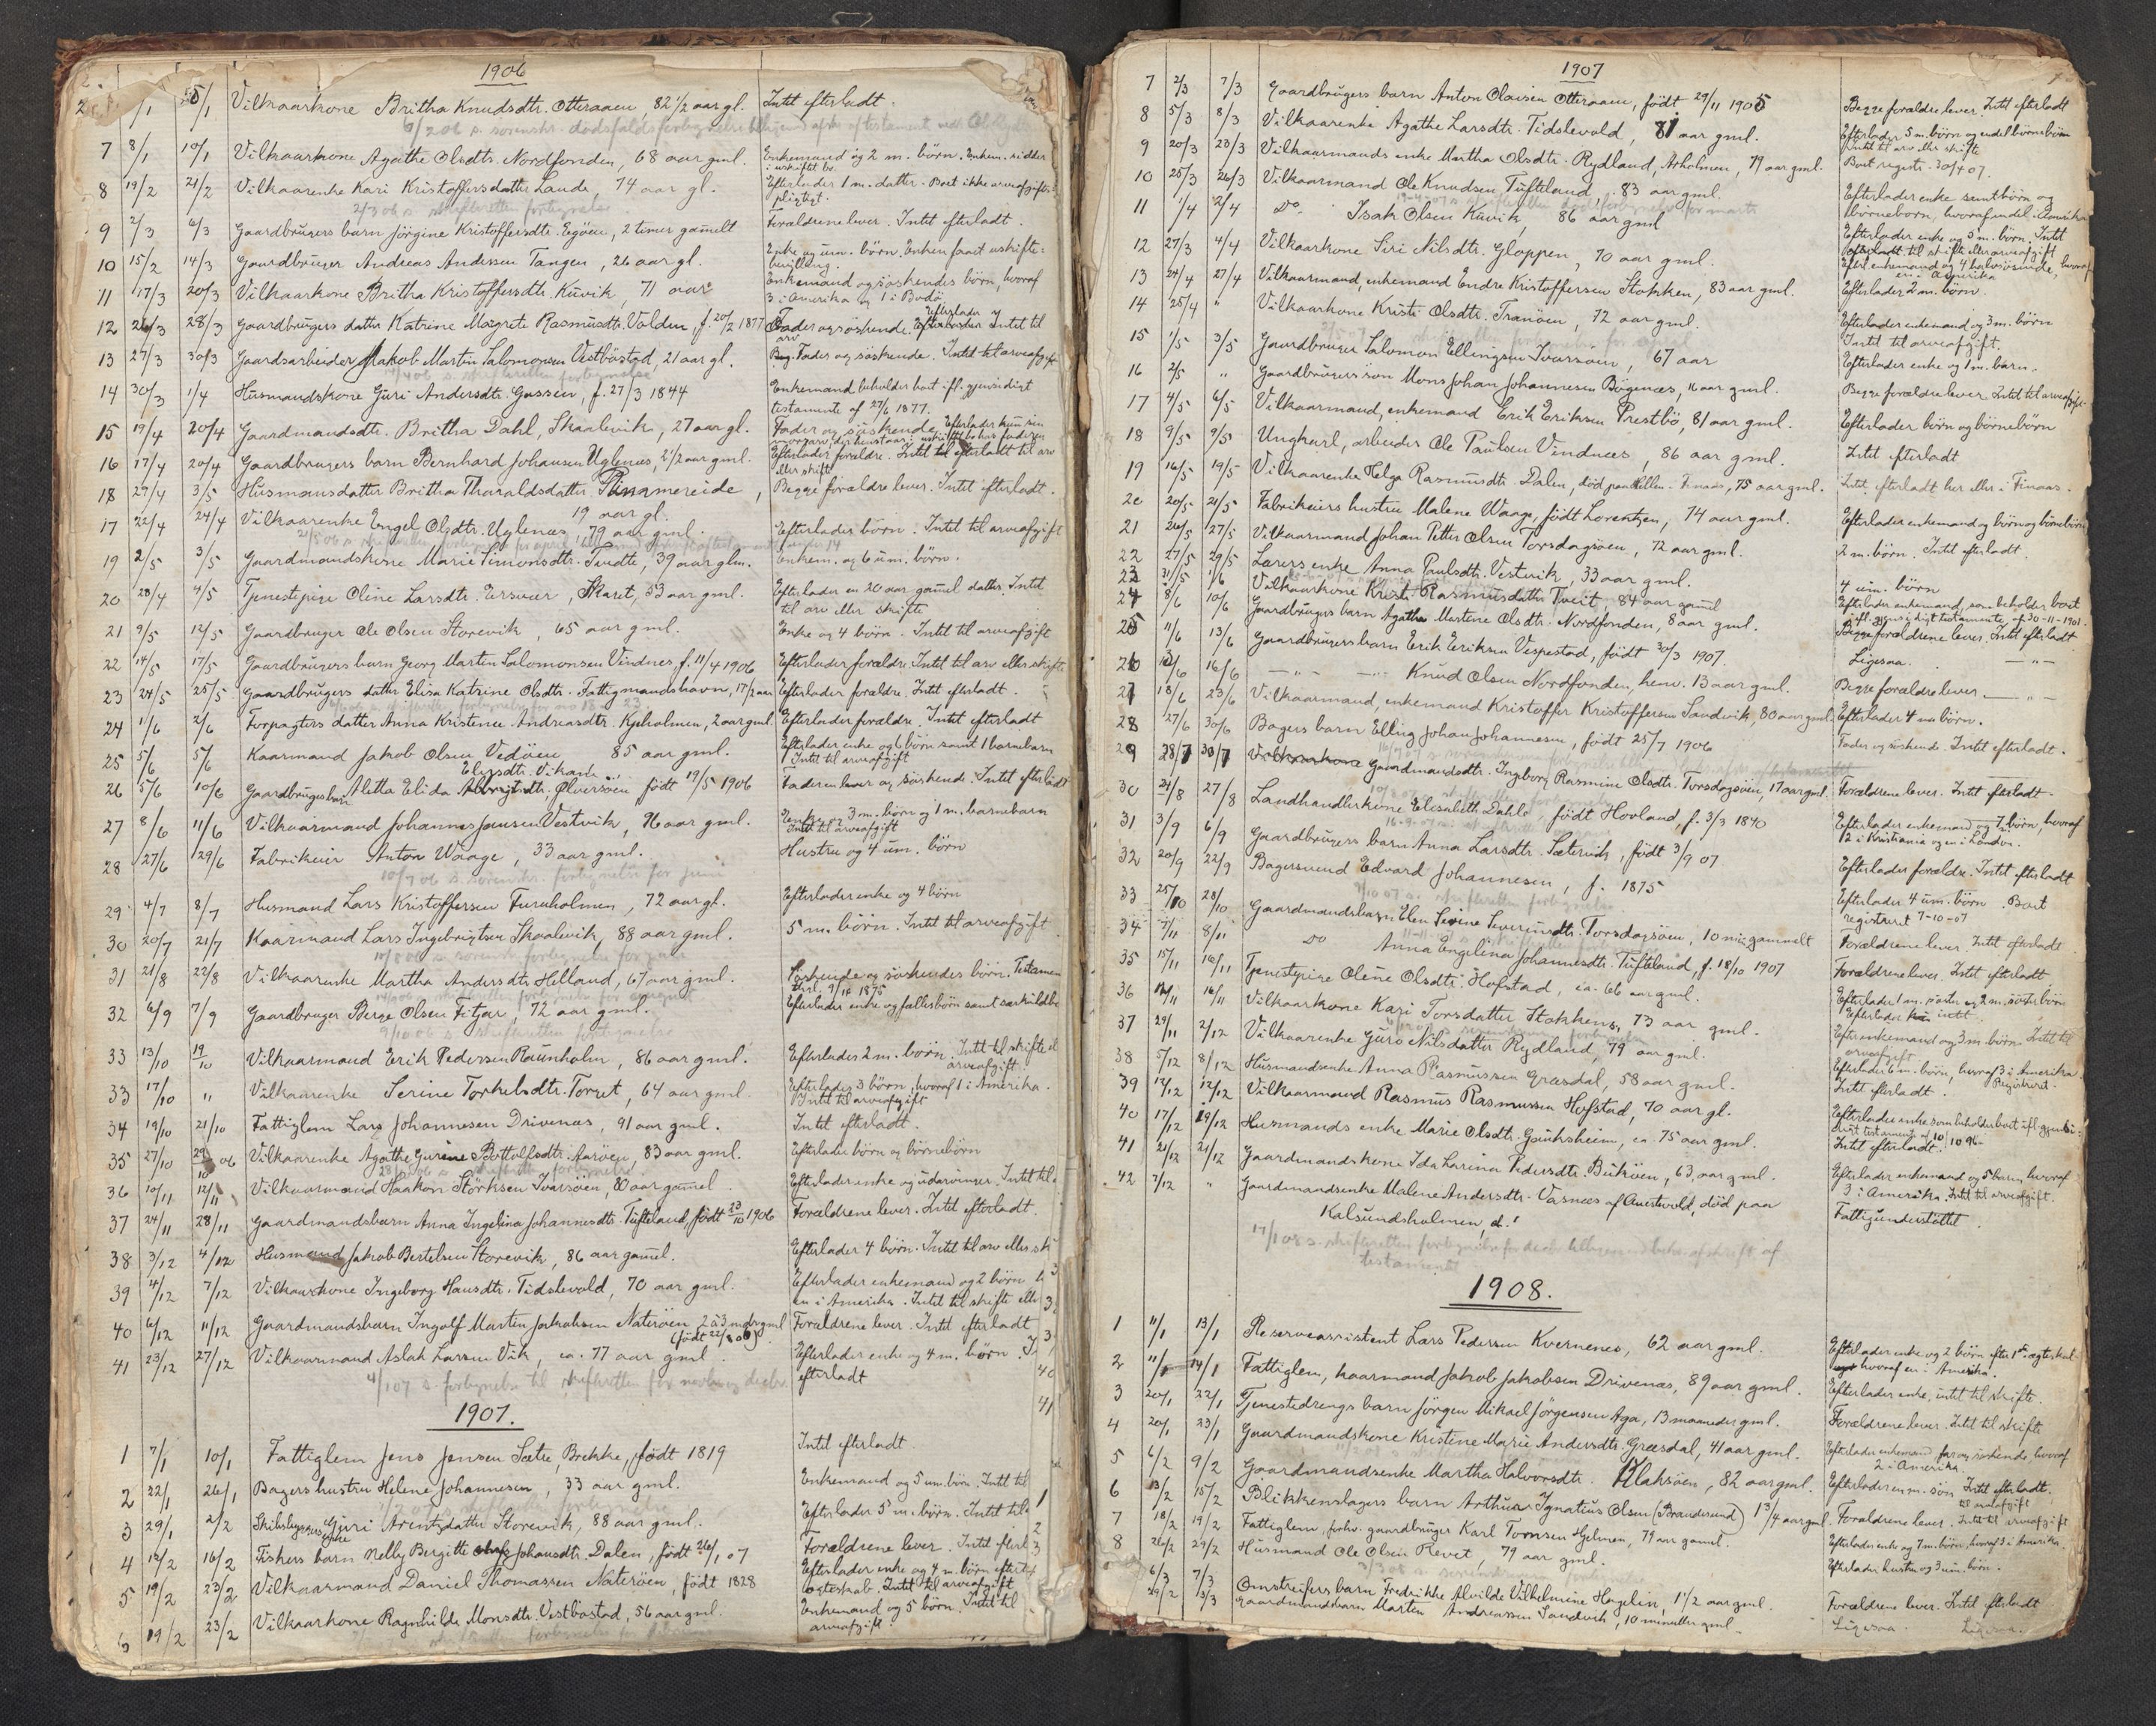 1906
2 /1 5/1 Vilkaarkone Britha Knudsdtr. Otteraaen, 82 1/2 aar gl. Intet efterladt.
6/2 06 s. sorenskr. dødsfaldsfortegnelse
7 8/1 10/1 Vilkaarkone Agathe Olsdtr. Nordfonden, 68 aar gml. Enkemand og 2 m. børn. Enkem. sidder i uskiftet bo.
8 19/2 21/2 Vilkaarenke Kari Kristoffersdatter Lande, 74 aar gl. Efterlader 1 m. datter. Boet ikke arveafgifts-pligtigt.
2/3 06 s. skifteretten fortegnelse
9 2/3 6/3 Gaardbrugers barn Jörgine Kristoffersdtr. Egöen, 2 timer gamelt Forældrene lever. Intet efterladt.
10 15/2 14/3 Gaardbruger Andreas Andersen Tangen, 26 aar gl. Enke og um. börn. Enken faaet uskifte-bevilling.
11 17/3 20/3 Vilkaarkone Britha Kristoffersdtr. Kuvik, 71 aar Enkemand og söskendes börn, hvoraf 3 i Amerika og 1 i Bodö.
12 26/3 28/3 Gaardbrugers datter Katrine Magrete Rasmusdtr. Volden, f. 20/2 1877 Fader og söskende. Efterlader Intet til arv
13 27/3 30/3 Gaardsarbeider Jakob Martin Salomonsen Vestböstad, 21 aar gl. Fader og söskende. Intet til arveafgift
14 30/3 1/4 Husmandskone Guri Andersdtr. Gaasen, f. 27/3 1844 Enkemand beholder boet ifl. gjensidigt testamente af 27/6 1877.
15 19/4 20/4 Gaardmandsdtr. Britha Dahl, Skaalevik, 27 aar gl. Fader og söskende. Efterlader kun sin mödrearv, der henstaar i uskiftet bo hos faderen
16 17/4 20/4 Gaardbrugers barn Bernhard Johansen Uglenæs, 2 1/2 aar gml. Efterlader forældre. Intet efterladt til arv eller skifte
18 29/4 3/5 Husmansdatter Britha Tharaldsdatter Rimmereide, Begge forældre lever. Intet efterladt.
19 aar gl.
17 22/4 24/4 Vilkaarenke Engel Olsdtr. Uglenæs, 79 aar gml. Efterlader börn. Intet til arveafgift
19 2/5 3/5 Gaardmandskone Marie Simonsdtr. Tvedte, 39 aar glm. Enkem. og 6 um. börn.
20 28/4 4/5 Tjenestepige Oline Larsdtr. Ersvær, Skaret, 53 aar gml. Efterlader en 20 aar gamel datter. Intet til arv eller skifte
21 9/5 12/5 Gaardbruger Ole Olsen Storevik, 65 aar gml. Enke og 4 börn. Intet til arveafgift
22 14/5 17/5 Gaardbrugers barn Georg Martin Salomonsen Vindnes, f. 11/4 1906 Efterlader forældre. Intet til arv eller skifte
23 24/5 25/5 Gaardbrugers datter Elisa Katrine Olsdtr. Fattigmandshavn, 17 1/2 aar Efterlader forældre. Intet efterladt.
24 1/6 2/6 Forpagters datter Anna Kristine Andreasdtr. Kjeholmen, 2 aar gml. Efterlader forældre. Intet efterladt
25 5/6 5/6 Kaarmand Jakob Olsen Vedöen 85 aar gml. Efterlader enke og 6 börn samt 1 barnebarn Intet til arveafgift
26 5/6 10/6 Gaardbrugersbarn Aletta Elida Ølversöen født 19/5 1906 Faderen lever og söskende. Intet efterladt
27 8/6 11/6 Vilkaarmand Johannes Jansen Vestvik, 76 aar gml. Enke og 3 m. börn og 1 m. barnebarn Intet til arveafgift
28 27/6 29/6 Fabrikeier Anton Waage, 33 aar gml. Hustru og 4 um. börn
10/7 06 s. sorenskr. fortegnelse for juni
29 4/7 8/7 Husmand Lars Kristoffersen Furuholmen, 72 aar gl. Efterlader enke og 4 börn
30 20/7 21/7 Kaarmand Lars Ingebrigtsen Skaalevik, 88 aar gml. 5 m. börn. Intet til arveafgift
10/8 06 s. sorenskr. fortegnelse for juli
31 21/8 22/8 Vilkaarenke Martha Andersdtr. Helland, 67 aar gml. Söskende og söskendes börn.
32 6/9 7/9 Gaardbruger Berge Olsen Fitjar, 72 aar gml. Efterlader enke og fællesbörn samt særkuldbörn
9/10 06 s. skifteretten fortegnelse
33 13/10 19/10 Vilkaarmand Erik Pedersen Raunholm, 86 aar gml. Efterlader 2 m. börn. Intet til skifte el arveafgift
33 17/10 " Vilkaarenke Serine Torkelsdtr. Torget, 64 aar gml. Efterlader 3 börn, hvoraf 1 i Amerika. Intet til arveafgift
34 19/10 21/10 Fattiglem Lars Johannesen Drivenæs, 91 aar gml. Intet efterladt.
35 27/10 29/10 06 Vilkaarenke Agathe Gurine Bottolfsdtr. Aarvöen, 83 aar gml. Efterlader börn og börnebörn
36 10/11 12/11 Vilkaarmand Haakon Störksen Ivarsöen, 80 aar gamel Efterlader enke og udarvinger. Intet til
37 24/11 28/11 Gaardmandsbarn Anna Ingelina Johannesdtr. Tufteland, født 23/10 1906 Forældrene lever. Intet efterladt.
38 3/12 4/12 Husmand Jakob Bertelsen Storevik, 86 aar gamel. Efterlader 4 börn. Intet til arv eller sk
39 4/12 7/12 Vilkaarkone Ingeborg Hansdtr. Tidslevold, 70 aar gml. Efterlader enkemand og 2 börn en i Amerika. Intet til skifte eller
40 6/12 11/12 Gaardmandsbarn Ingolf Martin Jakobsen Nateröen 2 à 3 mdr gml Forældrene lever. Intet efterladt
41 23/12 27/12 Vilkaarmand Aslak Larsen Vik, ca. 77 aar gml. Efterlader enke og 4 m. børn. efterladt
4/1 07 s. fortegnelse til skifteretten for novbr og decbr.
1907.
1 7/1 10/1 Fattiglem Jens Jensen Sætre, Brekke, født 1819 Intet efterladt
2 22/1 26/1 Bagers hustru Helene Johannesen, 33 aar gml. Enkemand og 5 um. börn. Intet til
3 29/1 2/2 Guri Arentzdatter Storevik, 88 aar gml. Efterlader 5 m. børn. Intet til
4 12/2 16/2 Fiskers barn Nelly Bergitte Johansdtr. Dalen, født 26/1 07 Forældrene lever. Intet efterl
5 19/2 23/2 Vilkaarmand Daniel Thomassen Nateröen, født 1828 Efterlader enke og 4 m. börn efter ægteskab. Intet til arveafgift
6 19/2 23/2 Vilkaarkone Ragnhilde Monsdtr. Vestbøstad, 56 aar gml. Enkemand og 5 börn. Intet til arveafgift
1907
7 2/3 7/3 Gaardbrugers barn Anton Olaisen Otteraaen, født 29/11 1905 Begge forældre lever. Intet efterladt
8 5/3 8/3 Vilkaarenke Agathe Larsdtr. Tidslevold, 81 aar gml. Efterlader 5 m. børn og endel börnebörn Intet til arv eller skifte
9 20/3 23/3 Vilkaarmands enke Martha Olsdtr. Rydland, Arholmen, 79 aar gml. Boet registr. 30/4 07.
10 25/3 26/3 Vilkaarmand Ole Knudsen Tufteland, 83 aar gml. Efterlader enke samt börn og börnebörn, hvoraf endel i Amerika
11 1/4 2/4 Do. Isak Olsen Kuvik, 86 aar gml Efterlader enke og 5 m. börn. Intet efterladt til skifte eller arveafgift
12 27/3 4/4 Vilkaarkone Siri Nilsdtr. Gloppen, 70 aar gml. Efterl. enkemand og 4 halvsöskende, hvoraf en i Amerika
13 24/4 27/4 Vilkaarmand, enkemand Endre Kristoffersen Stokken, 83 aar gml. Efterlader 2 m. börn.
14 25/4 " Vilkaarkone Kristi Olsdtr. Tranöen, 72 aar gml. Efterlader enkemand og 3 m. börn Intet til arveafgift.
15 1/5 3/5 Gaardbruger Salomon Ellingsen Ivarsöen, 67 aar Efterlader enke og 1 m. barn.
16 2/5 " Gaardbrugers sön Mons Johan Johannesen Bögenæs, 16 aar gml. Begge forældre lever. Intet til arveafgift.
17 4/5 6/5 Vilkaarmand, enkemand Erik Eriksen Prestbö, 81 aar gml. Efterlader börn og börnebörn
18 9/5 9/5 Ungkarl, arbeider Ole Paulsen Vindnæs, 86 aar gml. Intet efterladt
19 16/5 19/5 Vilkaarenke Helga Rasmusdtr. Dalen, död paa - Finaas, 75 aar gml. Intet efterladt her eller i Finaas.
20 20/5 21/5 Fabrikeiers hustru Malene Waage, født Lorentzen, 74 aar gml. Efterlader enkemand og börn og börnebörn
21 26/5 27/5 Vilkaarmand Johan Petter Olsen Torsdagsöen, 72 aar gml. 2 m. börn. Intet efterladt.
22 27/5 29/5 Lærers enke Anna Paulsdtr. Vestvik, 33 aar gml. 4 um. börn
23 31/5 1/6 Vilkaarkone Kristi Rasmusdatter Tveit, 84 aar gamel Efterlader enkemand, som beholder boet ifl. gjensidigt testamente af 30-11-1901.
24 8/6 10/6 Gaardbrugers barn Agatha Martine Olsdtr. Nordfonden, 8 aar gml. Begge forældrene lever. Intet efterladt
25 11/6 13/6 Gaardbrugers barn Erik Eriksen Vespestad, født 30/3 1907. Ligesaa. — " —
26 12/6 16/6 — " — — " — Knud Olsen Nordfonden, henv. 13 aar gml. Begge forældre lever — " —
27 18/6 23/6 Vilkaarmand, enkemand Kristoffer Kristoffersen Sandvik, 80 aar gml. Efterlader 4 m börn.
28 27/6 30/6 Bagers barn Elling Johan Johannesen, født 25/7 1906 Fader og söskende. Intet efterladt.
29 28/7 30/7 Gaardmandsdtr. Ingeborg Rasmine Olsdtr. Torsdagsöen, 17 aar gml. Forældrene lever. Intet efterladt
30 24/8 27/8 Landhandlerkone Elisabeth Dahle, født Hovland, f. 3/3 1840 Efterlader enkemand og 7 börn, hvoraf 2 i Kristiania og en i London.
31 3/9 6/9 Gaardbrugers barn Anna Larsdtr. Sætervik, født 3/9 07 Efterlader forældre. Intet efterladt
32 20/9 22/9 Bagersvend Edvard Johannesen, f. 1875 Efterlader 4 um. börn. Boet registrert 7-10-07
33 25/10 28/10 Gaardmandsbarn Elen Serine Severinsdtr. Torsdagsöen, 10 min gammelt Forældrene lever. Intet efterladt
34 7/11 8/11 Do Anna Engelina Johannesdtr. Tufteland, f. 18/10 1907 Forældrene lever. Intet efterladt
35 15/11 16/11 Tjenestepige Oline Olsdtr. Hofstad, ca. 66 aar gml. Efterlader 1 m. söster og 2 m. söster börn Efterlader intet
36 14/11 16/11 Vilkaarkone Kari Torsdatter Stokken, 73 aar gml. Efter enkemand og 3 m. börn. Intet til arveafgift
37 29/11 2/12 Vilkaarenke Guro Nilsdatter Rydland, 79 aar gml. Efterlader 6 m. börn, hvoraf 3 i Amerika. Registrert.
38 5/12 8/12 Husmandsenke Anna Rasmussen Græsdal, 58 aar gml. Intet efterladt.
39 12/12 12/12 Vilkaarmand Rasmus Rasmussen Hofstad, 70 aar gl. Efterlader enke som beholder boet ifl. gjensi-digt testamente af 10/10 96
40 17/12 19/12 Husmands enke Marie Olsdtr. Gjuksheim, ca. 75 aar gml. Intet efterladt.
41 21/12 21/12 Gaardmandskone Ida Larina Pedersdtr. Buköen, 63 aar gml. Efterlader enkemand og 5 börn, hvoraf 3 i Amerika. Intet til arveafgift.
42 7/12 " Gaardmandsenke Malene Andersdtr. Vasnæs af Austevold, død paa Fattigunderstöttet.
Kalsundsholmen, d.
17/1 08 s. skifteretten fortegnelse for decbr. afskrift af
testamente
1908.
1 11/1 13/1 Reserveassistent Lars Pedersen Kvernenes, 62 aar gml. Efterlader enke og 2 börn efter 1ste ægteskab hvoraf en i Amerika.
2 11/1 14/1 Fattiglem, kaarmand Jakob Jakobsen Drivenæs, 89 aar gml. Efterlader enke, intet til skifte.
3 20/1 22/1 Tjenestedrengs barn Jörgen Mikael Jörgensen Aga, 13 maaneder gml. Forældrene lever. Intet til skifte
4 20/1 23/1 Gaardmandskone Kristine Marie Andersdtr. Græsdal, 41 aar gml. Efterlader enkemand, far og söskende, hvoraf 2 i Amerika.
5 6/2 9/2 Gaardmandsenke Martha Halvorsdtr. Klaksöen, 82 aar gml. Efterlader en m. sön Intet efterladt. til arveafgift
6 13/2 15/2 Blikkenslagers barn Arthur Ignatius Olsen (Brandesund) 1 3/4 aar gml. Forældrene lever. Intet til arveafgift
7 18/2 19/2 Fattiglem, forhv. gaardbruger Karl Tomsen Hjelmen, 79 aar gamel. Efterlader enke og 7 m. börn, hvoraf 3 i Amerika
8 26/2 29/2 Husmand Ole Olsen Revet, 79 aar gml. Efterlader hustru og 3 um. börn.
6/3 7/3 Omstreifers barn Fredrikke Alvilde Vilhelmine Hagelin, 1 1/2 aar gml. Forældrene lever. Intet efterladt
29/2 3/3 Gaardmandsbarn Marten Andreassen Sandvik, 10 minutter gml. Ligesaa. Ligesaa.